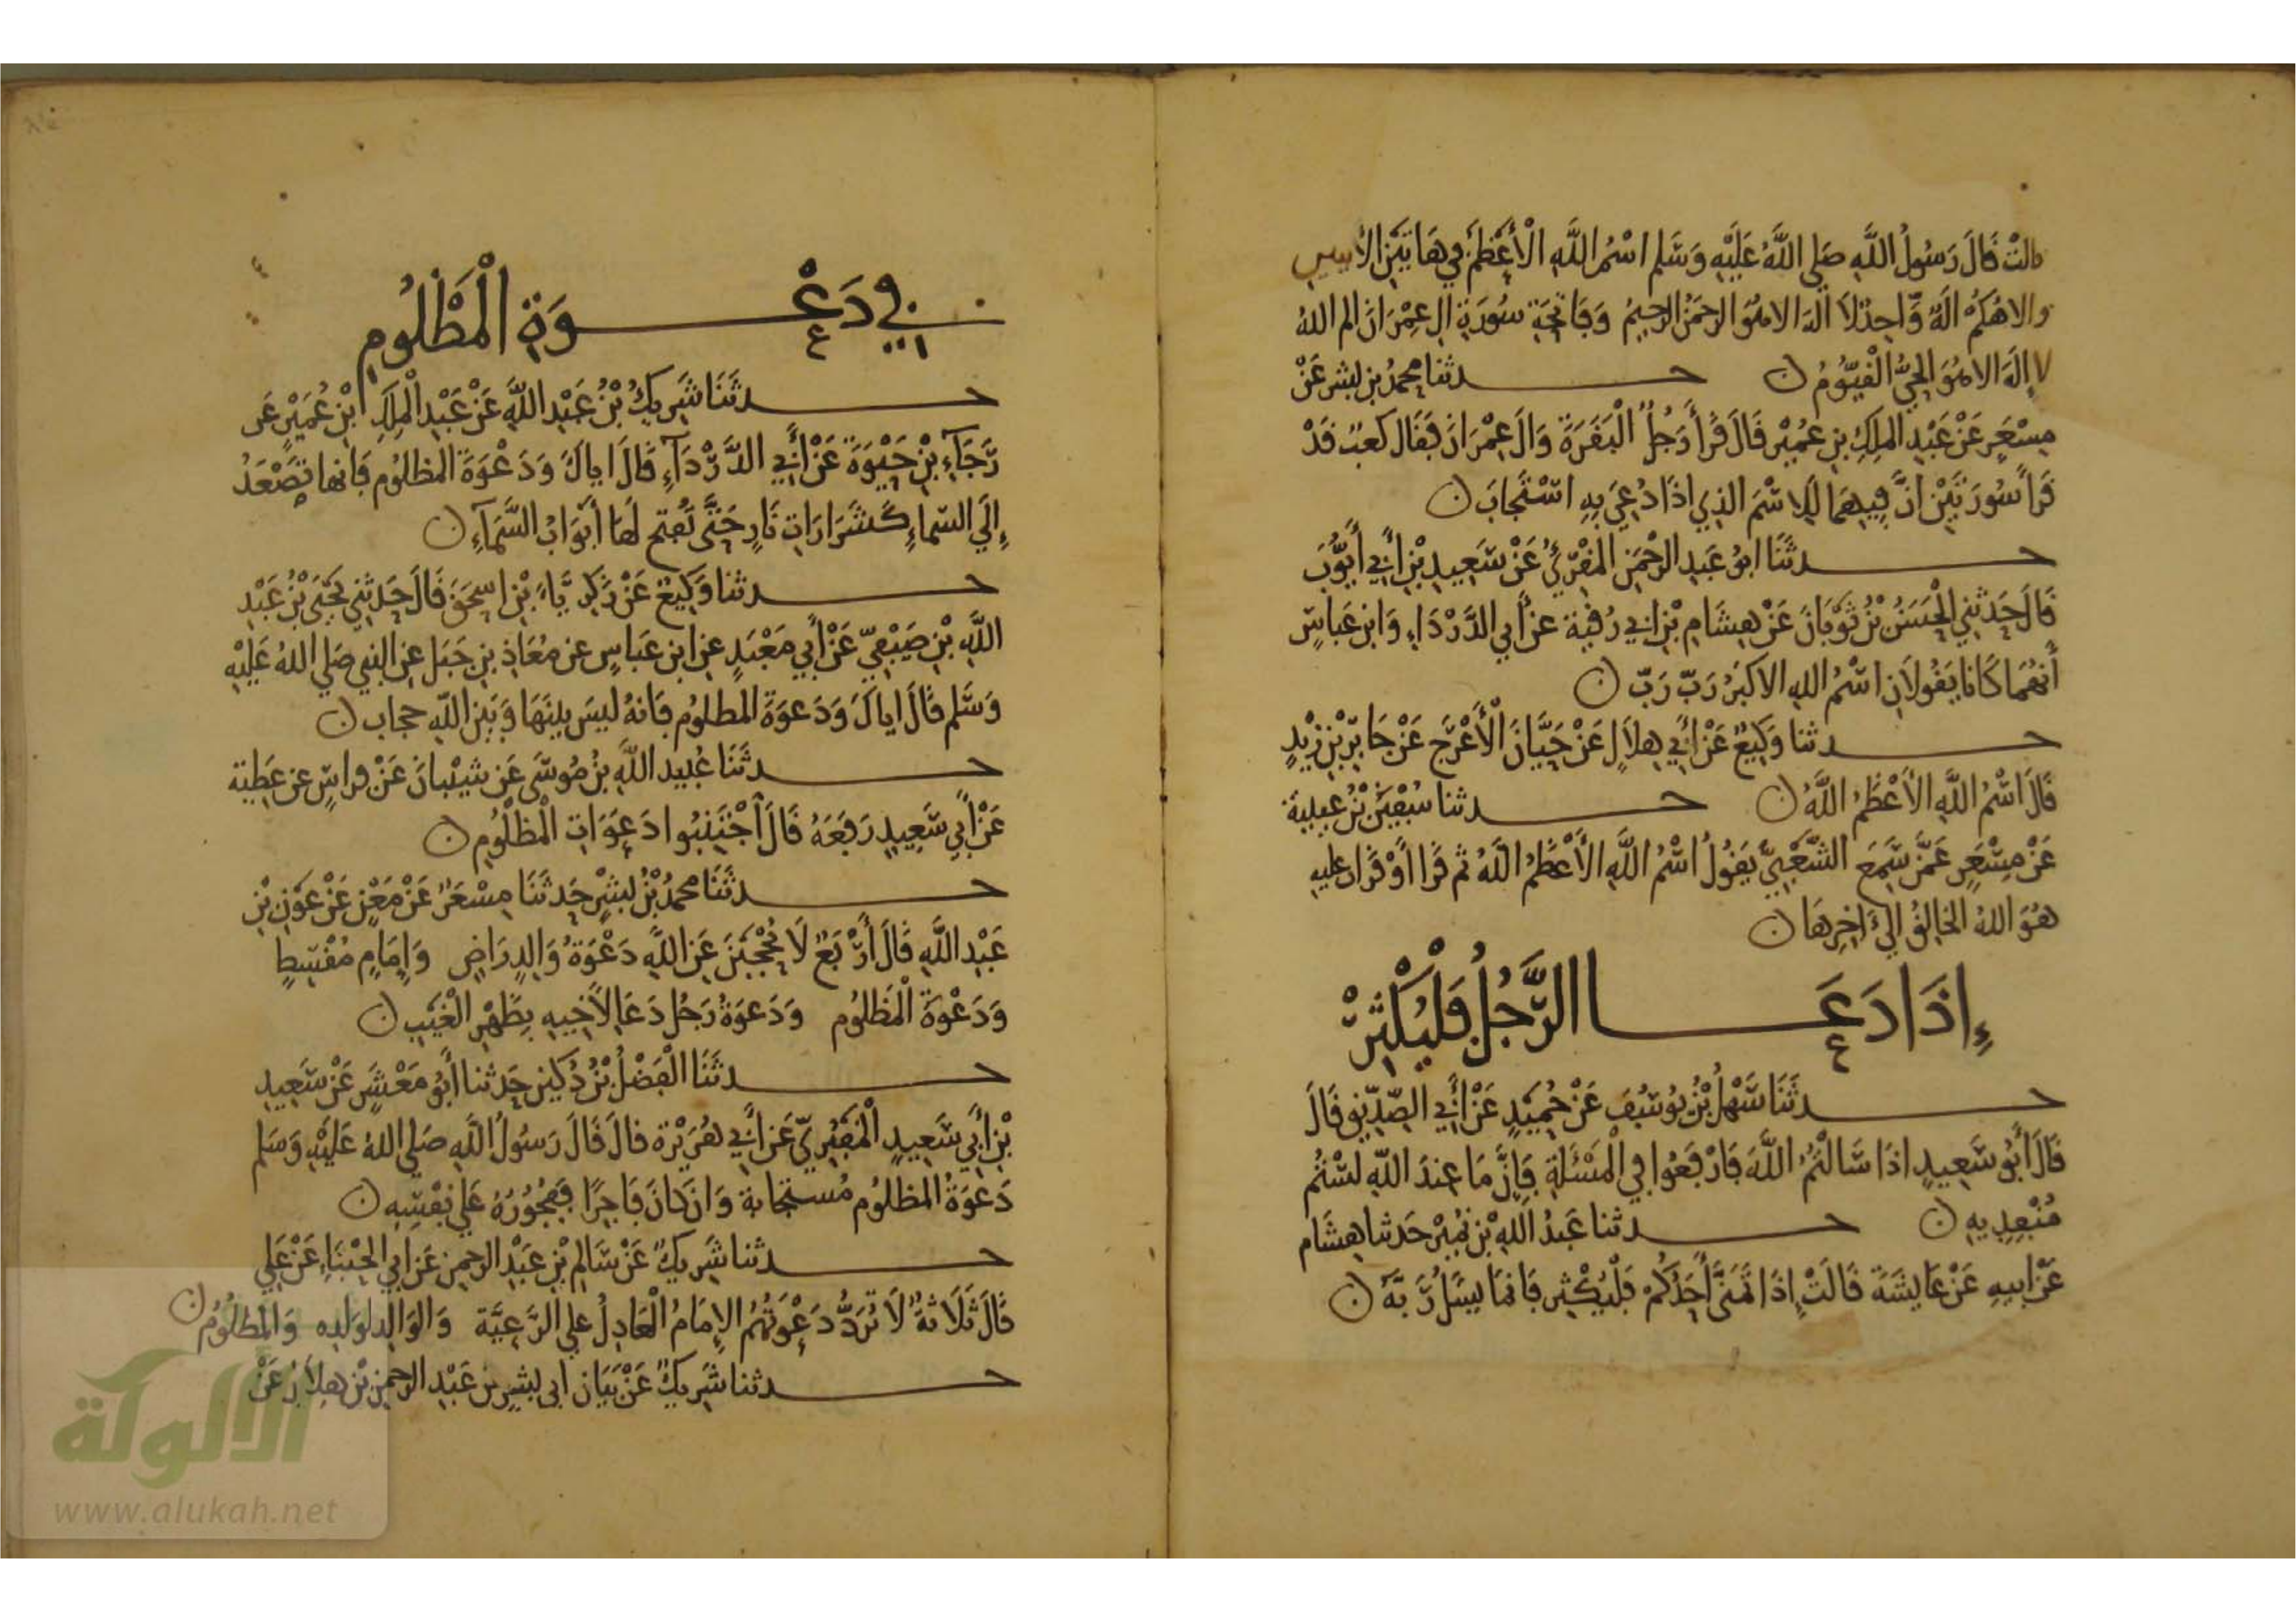 قالت قَالَ رَسُولُ اللَّهِ صَلى اللَّهُ عَلَيْهِ وَسَّلم اسْمُ اللَّهِ الْأَعْظَمُ فِي هَاتَيْنِ الأيتين
والاهُكُمْ الَهٌ وَّاحِدٌ لاَ الَهَ الا هُوَ الرحمَنُ الرحِيمُ وَفَاتِحَةِ سُورَةِ ال عِمْرَانَ الم اللهُ
لا إلَهَ الا هُوَ الحَيُّ الْقَيّوُمُ ن حدثنا محمدُ بن بشر عَنْ
مِسْعَرٍ عَنْ عَبْدِ الملِكِ بن عُمَيْر قَالَ قَرأ رَجُلٌ الْبَقَرَةَ وَالَ عِمْرَانَ فَقَال كعبٌ قَدْ
قَرأ سُورَتَيْنِ انَّ فِيهمَا لَلِاسْمَ الذِي اذَا دُعِيَ بِهِ اسْتَجابَ ن
حدثَنَا ابوُ عَبدِ الرحْمَنِ المقْرِئُ عَنْ سَّعِيدِ بْنِ أبِي أيُّوبَ
قَالَ حَدثنِي الْحَسَنُ بْنُ ثَوْبَانَ عَنْ هِشَامِ بْنِ ابي رُقيَة عن أبي الدَّرْدَاءِ وَابن عَبَاسٍ
أَنهُمَا كَانَا يَقُولاَنِ اسْمُ اللهِ الاكبَرُ رَبّ رَبّ ن
حدثنا وَكِيعٌ عَنْ أبِي هِلاَلٍ عَنْ حَيَّانَ الْأَعْرَج عَنْ جَابِر بْنِ زَيْدٍ
قَالَ اسْمُ اللَّهِ الأَعْظَمُ اللَّهُ ن حدثنا سُفْيَنُ بْنُ عيينة
عَنْ مِسْعَرٍ عَمَّنْ سَّمِعَ الشَّعْبِيَّ يَقُولُ اسْمُ اللَّهِ الأَعْظَمُ اللَّهُ ثم قَرَا اَوْ قَرَات عليه
هُوَ اللهُ الخَالِقُ الىَ ءاخِرِهَا ن
إذَا دَعَا الرَّجُلُ فَلْيُكْثِرْ
حدثَنَا سَّهْلُ بْنُ يُوسُفَ عَنْ حُمَيْدٍ عَنْ أبِي الصِّدِّيقِ قَالَ
قَالَ أبُو سَّعِيدٍ اذَا سَّالْتُمُ اللَّهَ فَارْفَعُوا فِي الْمَسْئَلَةِ فَإِنَّ مَا عِندَ اللَّهِ لَسْتُمْ
مُنْفِدِيهِ ن حدثنا عَبدُ اللهِ بْن نُمَيْر حَدثنا هِشَام
عَنْ ابِيهِ عَنْ عَايشَةَ قَالَتْ إذَا تَمَنَّى أَحَدُكُمْ فَلْيُكْثِر فَانمَا يسَل رَبَّهُ ن
في دَعْوَةِ الْمَظْلُومِ
حدثَنَا شَرِيكُ بْنُ عَبْدِ اللَّهِ عَنْ عَبْدِ الْمِلكِ ابْن عُمَيْرٍ عَن
رَّجَآءِ بْنِ حَيْوَةَ عَنْ أبِي الدَّرْدَآءِ قَالَ اياكَ وَدَعْوَةَ المظلُوم فَانها تَصْعَدُ
إلَى السّماءِ كَشَرَارَاتِ نَارٍ حَتَّى تُفتح لَهَا أبْوَابُ السَّمَآءِ ن
حدثنا وَكِيعٌ عَنْ زَكَرِيَّاءَ بْنِ اسْحَقَ قَالَ حَدثنِي يَحْيَى بْنُ عَبْدِ
اللَّهِ بْنِ صَيْفِيّ عَنْ أبي مَعْبَدٍ عن ابن عَبَاسٍ عن مُعَاذِ بن جَبَل عن النبي صَلى اللهُ عَلَيْهِ
وَسَّلم قَالَ اياكَ وَدَعوَةَ المظلُوم فَانهُ ليسَ بينَهَا وَبَيْنَ اللَّهِ حجاب ن
حدثَنَا عُبَيد اللَّهِ بْنُ مُوسَى عَن شَيْبَانَ عَنْ فراسٍ عن عَطِية
عَنْ أبِي سَّعِيدٍ رَفَعَهُ قَالَ اَجْتَنِبُوا دَعَوَاتِ الْمظلُومِ ن
حدثَنَا محمدُ بْنُ بشْرٍ حَدثَنَا مِسْعَرٌ عَنْ مَعْنٍ عَنْ عَوْنِ بْنِ
عَبْدِ اللَّهِ قَالَ أَرْبَعٌ لَا يُحْجَبْنَ عَنِ اللَّهِ دَعْوَةُ وَالِدٍ رَاضٍ وَإِمَامٍ مُقْسِطٍ
وَدَعْوَةَ الْمَظلُومِ وَدَعوَةُ رَجُل دَعَا لِأَخِيهِ بِظَهْرِ الْغَيْبِ ن
حدثَنَا الْفَضْلُ بْنُ دُكَين حَدثنا أَبُو مَعْشَرٍ عَنْ سَّعِيدِ
بْنِ أبِي سَّعِيدٍ الْمَقبُرِيّ عَن أبِي هُرَيْرَة قالَ قَالَ رَسُولُ اللَّهِ صَلى اللهُ عَلَيْهِ وَسَلم
دَعوَةُ المظلُومِ مُستجابة وَان كانَ فَاجِرًا فَفجُورُهُ عَلَى نَفْسِهِ ن
حدثنا شَرِيكٌ عَنْ سَّالِم بْنِ عَبْدِ الرحمن عَن ابي الحِبْنَاءِ عَنْ عَلي
قَالَ ثَلَاثَةٌ لَا تُرَدُّ دَعْوَتُهُم الاِمَامُ الْعَادِلُ على الرَّعِيَّة وَالوَالِد لوَلدِه وَالمظلُومُ ن
حدثنا شَرِيكٌ عَنْ بَيَان ابى بشر بن عَبْدِ الرحمن بْن هلالٍ عَنْ
الألوكة
www.alukah.net